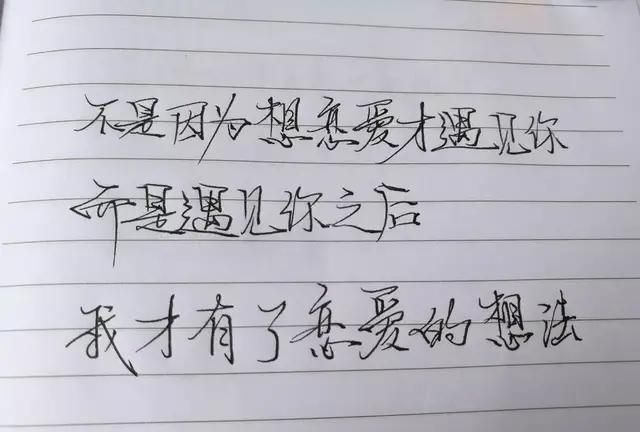 不是因为想恋爱才遇见你
而是遇见你之后
我才有了恋爱的想法